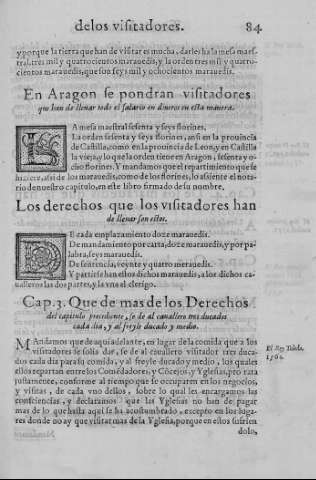 delos visitadores. 84
y porque la tierra que han de visitar es mucha, darles ha la mesa maes-
tral, tres mil y quatrocientos marauedis, y la orden tres mil y quatro-
cientos marauedis, que son seys mil y ochocientos marauedis.
En Aragon se pondran visitadores
que han de llenar todo el salario en dineros en esta manera.
LA mesa maestral sesenta y seys florines,
La orden sesenta y seys florines, ansi en la prouincia
de Castilla, como en la prouincia de Leon, y en Castilla
la vieja, y lo que la orden tiene en Aragon, sesenta y o-
cho florines. Y mandamos que el repartimiento que se
hiziere, assi de los marauedis, como de los florines, lo assiente el nota-
rio de nuestro capitulo, en este libro firmado de su nombre.
Los derechos que los visitadores han
de llenar son estos.
DE cada emplazamiento doze marauedis.
De mandamiento por carta, doze marauedis, y por pa-
labra, seys marauedis.
De sentencia, veynte y quatro marauedis.
Y partirse han estos dichos marauedis, a los dichos ca-
ualleros las dos partes, y la vna el clerigo.
Cap. 3. Que de mas de los Derechos
del capitulo precedente, se de al cauallero tres ducados
cada dia, y al freyle ducado y medio.
MAndamos que de aqui adelante, en lugar de la comida que a los
visitadores se solia dar, se de al cauallero visitador tres duca-
dos cada dia para su comida, y al freyle ducado y medio, los quales
ellos repartan entre los Comẽdadores, y Cõcejos, y Yglesias, pro rata
justamente, conforme al tiempo que se ocuparen en los negocios,
y visitas, de cada vno dellos, sobre lo qual les encargamos las
consciencias, y declaramos que las Yglesias no han de pagar
mas de lo que hasta aqui se ha acostumbrado, excepto en los luga-
res donde no ay que visitar mas de la Yglesia, porque en estos suelen
dolo,
El Rey
1560.